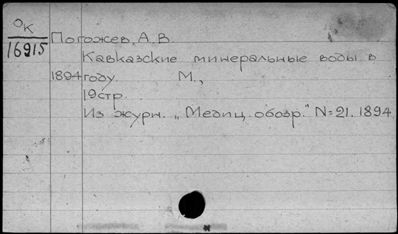 Ок
16915
Погожев, А.В.
Кавказские минеральные воды в
1894 году. М.,
19стр.
Из журн. „Медиц. обозр." N=21. 1894